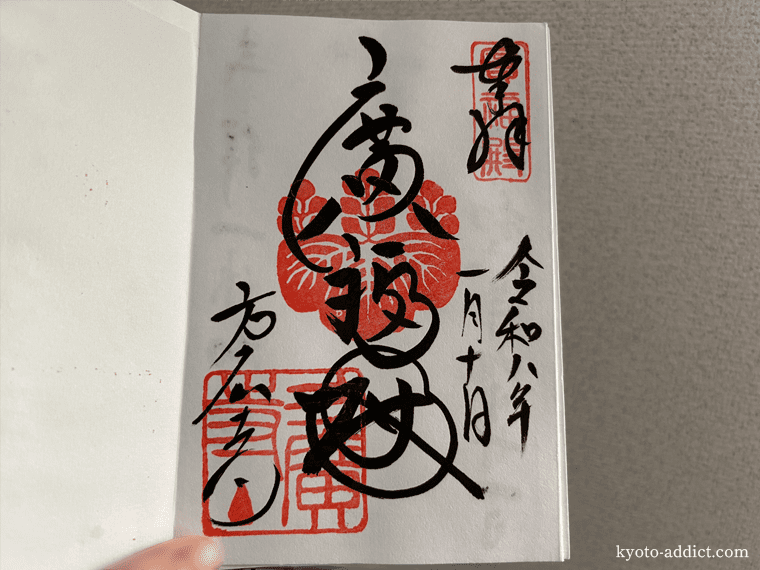 奉拝
令和八年
一月十日
廣福殿
方広寺
kyoto-addict.com